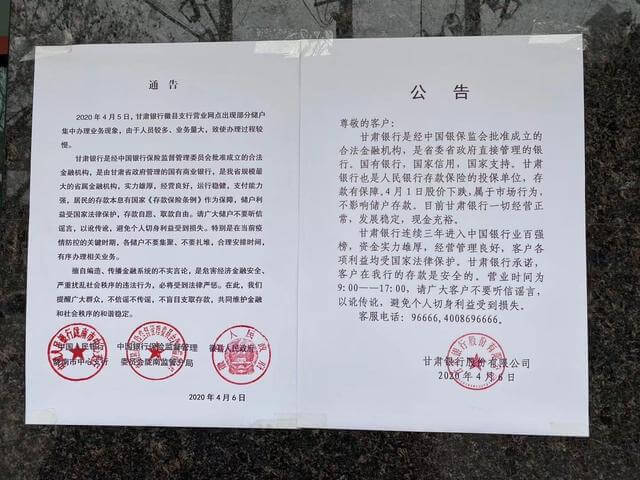 通 告
2020 年 4 月 5 日，甘肃银行徽县支行营业网点出现部分储户
集中办理业务现象，由于人员较多、业务量大，致使办理过程较
慢。
甘肃银行是经中国银行保险监督管理委员会批准成立的合法
金融机构，是由甘肃省政府管理的国有商业银行，是我省规模最
大的省属金融机构，实力雄厚，经营良好，运行稳健，支付能力
强，居民的存款本息有国家《存款保险条例》作为保障，储户利
益受国家法律保护，存款自愿、取款自由。请广大储户不要听信谣
言，以讹传讹，避免个人切身利益受到损失。特别是在当前疫
情防控的关键时期，各储户不要集聚、不要扎堆，合理安排时间，
有序办理相关业务。
擅自编造、传播金融系统的不实言论，是危害经济金融安全、
严重扰乱社会秩序的违法行为，必将受到法律严惩。在此，我们
提醒广大群众，不信谣不传谣，不盲目支取存款，共同维护金融
和社会秩序的和谐稳定。
中国人民银行 中国银行保险监督管理 徽县人民政府
陇南市中心支行 委员会陇南监管分局
2020 年 4 月 6 日
公 告
尊敬的客户：
甘肃银行是经中国银保监会批准成立的
合法金融机构，是省委省政府直接管理的银
行。国有银行，国家信用，国家支持。甘肃
银行也是人民银行存款保险的投保单位，存
款有保障。4 月 1 日股价下跌，属于市场行为，
不影响储户存款。目前甘肃银行一切经营正
常，发展稳定，现金充裕。
甘肃银行连续三年进入中国银行业百强
榜，资金实力雄厚，经营管理良好，客户各
项利益均受国家法律保护。甘肃银行承诺，
客户在我行的存款是安全的。营业时间为
9:00——17:00，请广大客户不要听信谣言，
以讹传讹，避免个人切身利益受到损失。
客服电话：96666,4008696666.
甘肃银行股份有限公司
2020 年 4 月 6 日